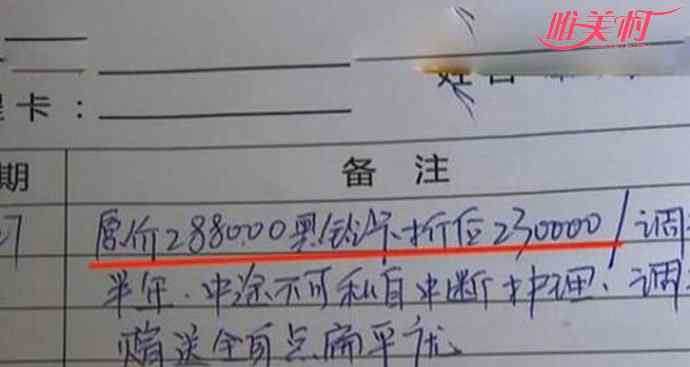 唯美树
卡：
期 备注
原价288000奥铃涤卡折位230000/调
半年.中途不可私自中断护理.调
赠送全面点扁平疣